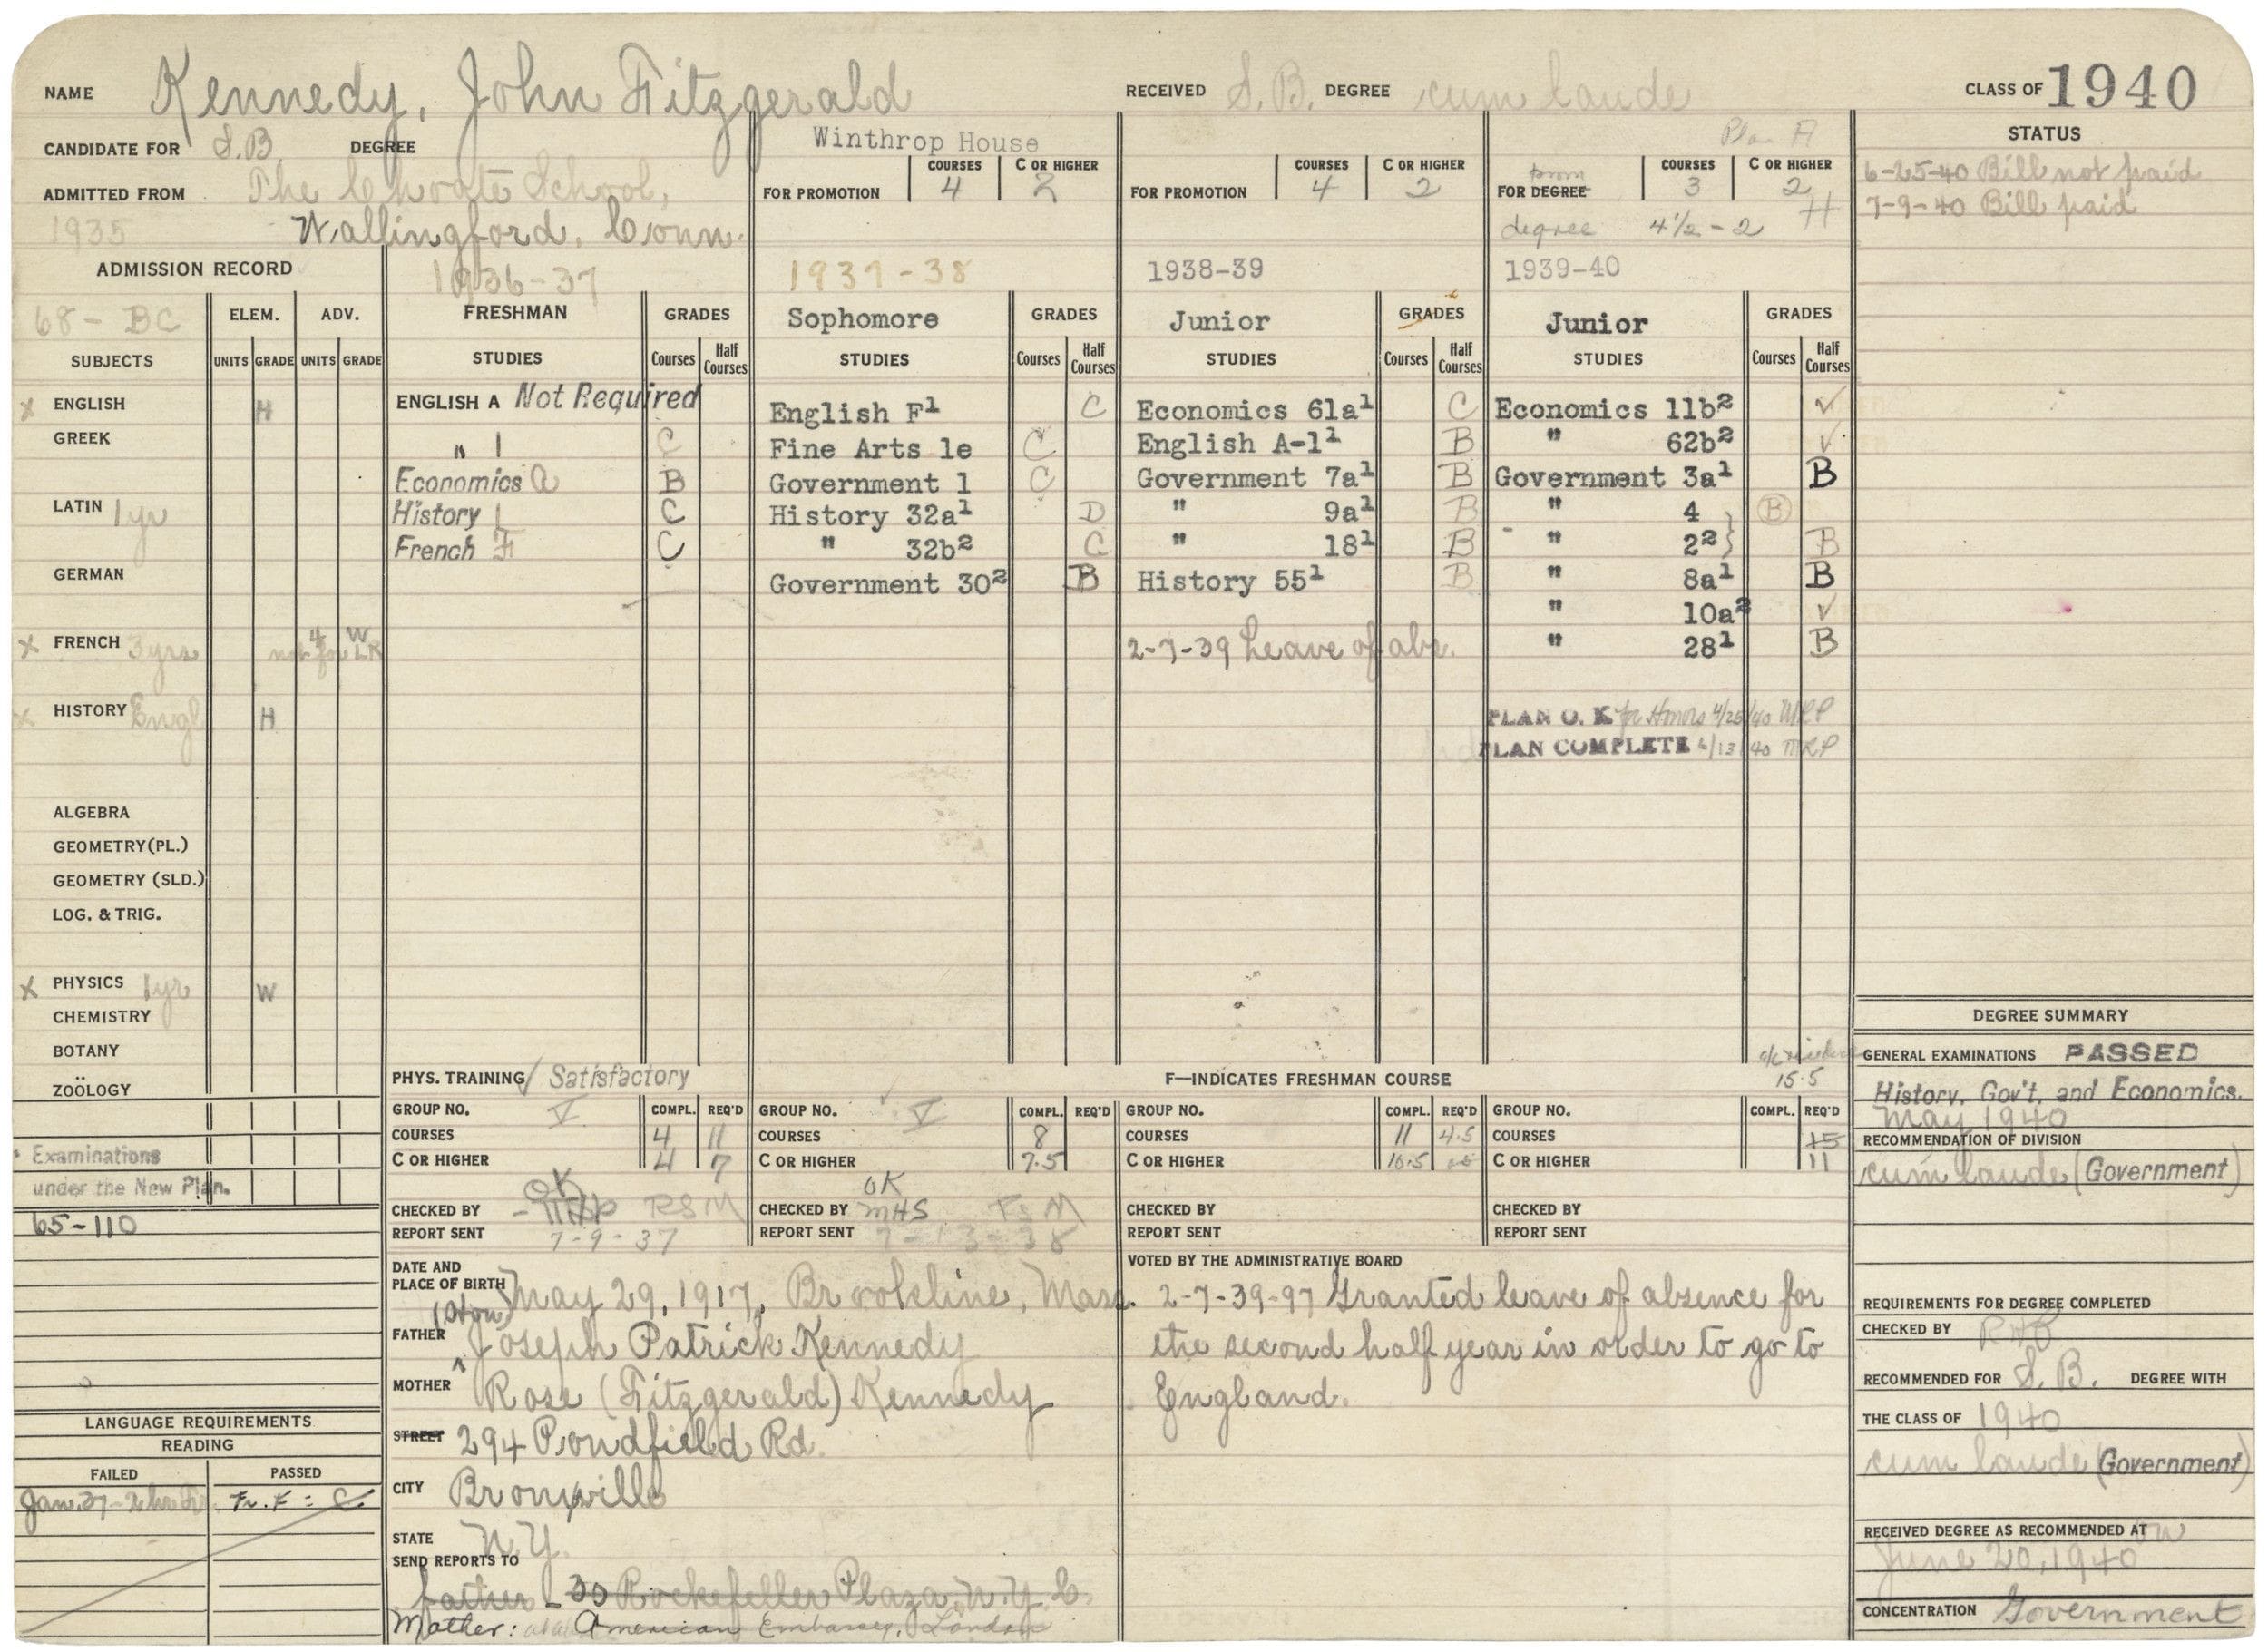 NAME Kennedy, John Fitzgerald RECEIVED S.B. DEGREE cum laude CLASS OF 1940
CANDIDATE FOR S.B. DEGREE Winthrop House Plan A STATUS
COURSES C OR HIGHER COURSES C OR HIGHER COURSES C OR HIGHER 6-25-40 Bill not paid
ADMITTED FROM The Choate School, FOR PROMOTION 4 2 FOR PROMOTION 4 2 prom FOR DEGREE 3 2 7-9-40 Bill paid
1935 Wallingford, Conn. degree 4½ - 2 H
ADMISSION RECORD 1936-37 1937-38 1938-39 1939-40
68- BC ELEM. ADV. FRESHMAN GRADES Sophomore GRADES Junior GRADES Junior GRADES
SUBJECTS UNITS GRADE UNITS GRADE STUDIES Courses Half Courses STUDIES Courses Half Courses STUDIES Courses Half Courses STUDIES Courses Half Courses
x ENGLISH H ENGLISH A Not Required English F1 C Economics 61a1 C Economics 11b2 ✓
GREEK " 1 C Fine Arts 1e C English A-11 B " 62b2 ✓
Economics A B Government 1 C Government 7a1 B Government 3a1 B
LATIN 1 yr History 1 C History 32a1 D " 9a1 B " 4 } B
French F C " 32b2 C " 181 B " 22 } B
GERMAN Government 302 B History 551 B " 8a1 B
" 10a2 ✓
x FRENCH 3 yrs 4 W 2-7-39 Leave of abs. " 281 B
x HISTORY Engl H PLAN O. K. for Honors 4/25/40 MRP
PLAN COMPLETE 6/13/40 MRP
ALGEBRA
GEOMETRY (PL.)
GEOMETRY (SLD.)
LOG. & TRIG.
x PHYSICS 1 yr W
CHEMISTRY DEGREE SUMMARY
BOTANY GENERAL EXAMINATIONS PASSED
ZOÖLOGY PHYS. TRAINING ✓ Satisfactory F—INDICATES FRESHMAN COURSE 15.5 History, Gov't. and Economics.
GROUP NO. V COMPL. REQ'D GROUP NO. V COMPL. REQ'D GROUP NO. COMPL. REQ'D GROUP NO. COMPL. REQ'D May 1940
COURSES 4 11 COURSES 8 COURSES 11 4.5 COURSES 15 RECOMMENDATION OF DIVISION
Examinations C OR HIGHER 4 7 C OR HIGHER 7.5 C OR HIGHER 10.5 C OR HIGHER 11 cum laude (Government)
under the New Plan. OK OK
65-110 CHECKED BY RSM CHECKED BY MHS RSM CHECKED BY CHECKED BY
REPORT SENT 7-9-37 REPORT SENT 7-13-38 REPORT SENT REPORT SENT
DATE AND PLACE OF BIRTH May 29, 1917, Brookline, Mass.
FATHER (Hon) Joseph Patrick Kennedy
MOTHER Rose (Fitzgerald) Kennedy
STREET 294 Pondfield Rd.
CITY Bronxville
STATE N.Y.
SEND REPORTS TO
Father - 30 Rockefeller Plaza, N.Y.C.
Mother: American Embassy, London
VOTED BY THE ADMINISTRATIVE BOARD
2-7-39-97 Granted leave of absence for
the second half year in order to go to
England.
LANGUAGE REQUIREMENTS
READING
FAILED PASSED
Jan. 37 - 2 hr. Fr. Fr. F = C
REQUIREMENTS FOR DEGREE COMPLETED
CHECKED BY
RECOMMENDED FOR S.B. DEGREE WITH
THE CLASS OF 1940
cum laude (Government)
RECEIVED DEGREE AS RECOMMENDED AT on
June 20, 1940
CONCENTRATION Government